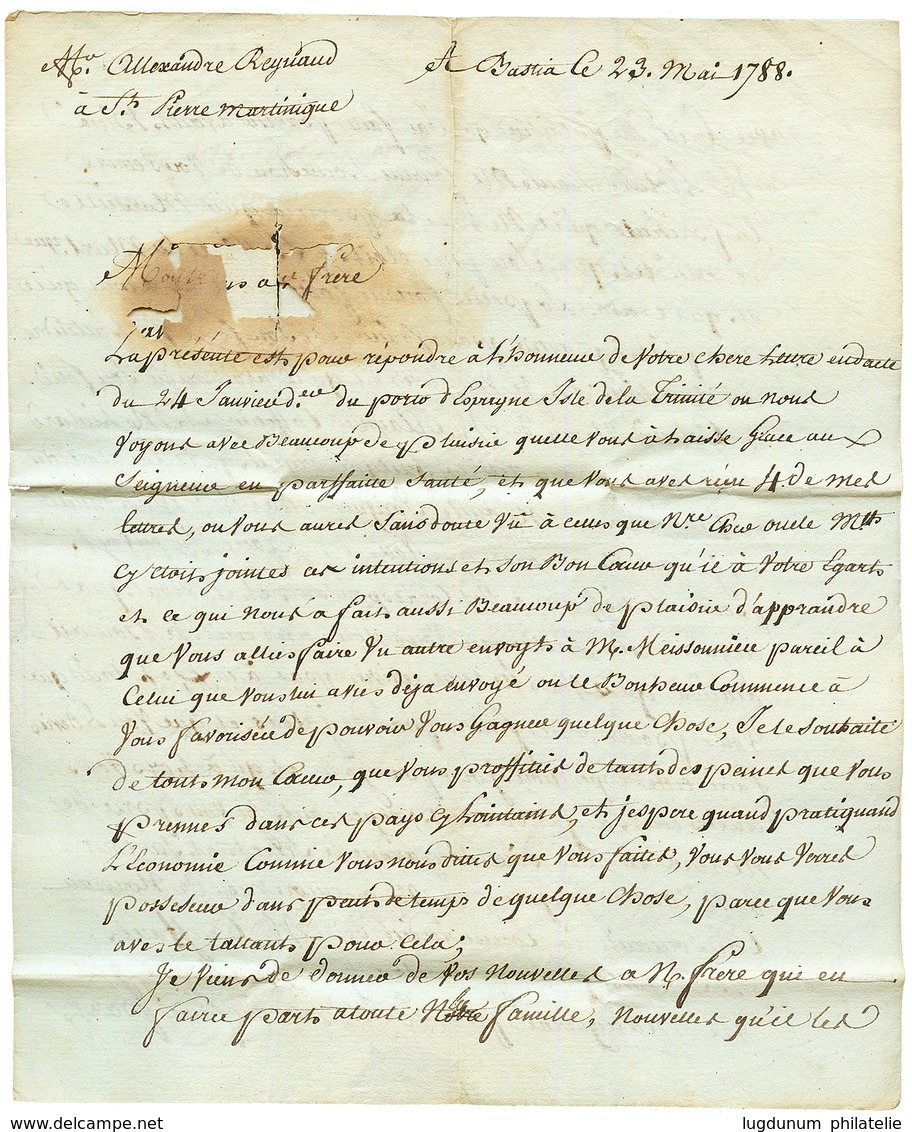 Mr. Allexandre Reynaud
à St. Pierre Martinique
A Bastia le 23. Mai 1788.
frere
La présente est pour répondre à l'honneur de Votre chere Lettre en datte
du 24 Janvier d.er du port d'Espagne Isle de la Trinité ou nous
Voyons avec Beaucoup de plaisir quelle vous à Laissé Grace au
Seigneur en parffaitte Santé, et que Vous avés réçu 4. de mes
lettres, ou Vous aurés Sans doute Vû à celles que N.re Cher oncle
Cy étoit jointes ces intentions et Son Bon Cœur qu'il à Votre Egart
et ce qui Nous a fait aussi Beaucoup de plaisir d'apprandre
que Vous alliés faire Un autre envoyt à M. Meissonnier pareil à
Celui que Vous lui aviés déja envoyé ou le Bonheur Commence à
Vous favoriser de pouvoir Vous Gagner quelque Chose, Je le Souhaite
de tout mon Cœur, que Vous proffitiés de tant des peines que Vous
prennés dans ces pays Cy Lointains, et j'espere quand pratiquand
L'Economie Comme Vous nous dittes que Vous faites, Vous Vous Verrés
possesseur dans peut de temps de quelque Chose, parce que Vous
avés le tallants pour Cela;
Je Viens de donner de Vos Nouvelles a M. frere qui en
faira part a toute Notre famille, Nouvelles qu'il les
lugdunum philatelie
www.delcampe.net